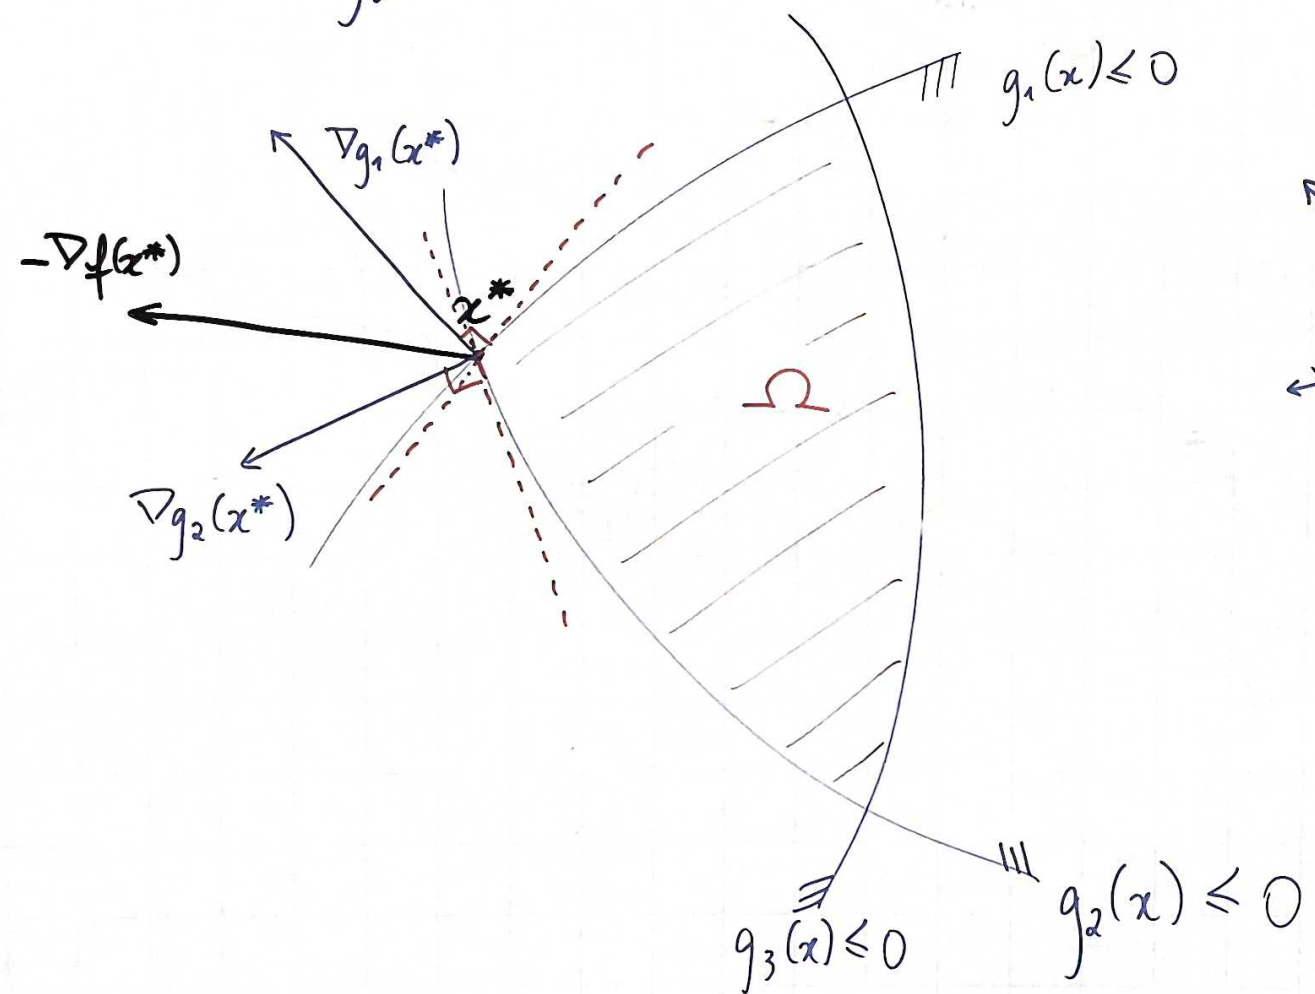 g₁(x) ≤ 0
∇g₁(x*)
-∇f(x*)
x*
Ω
∇g₂(x*)
g₂(x) ≤ 0
g₃(x) ≤ 0